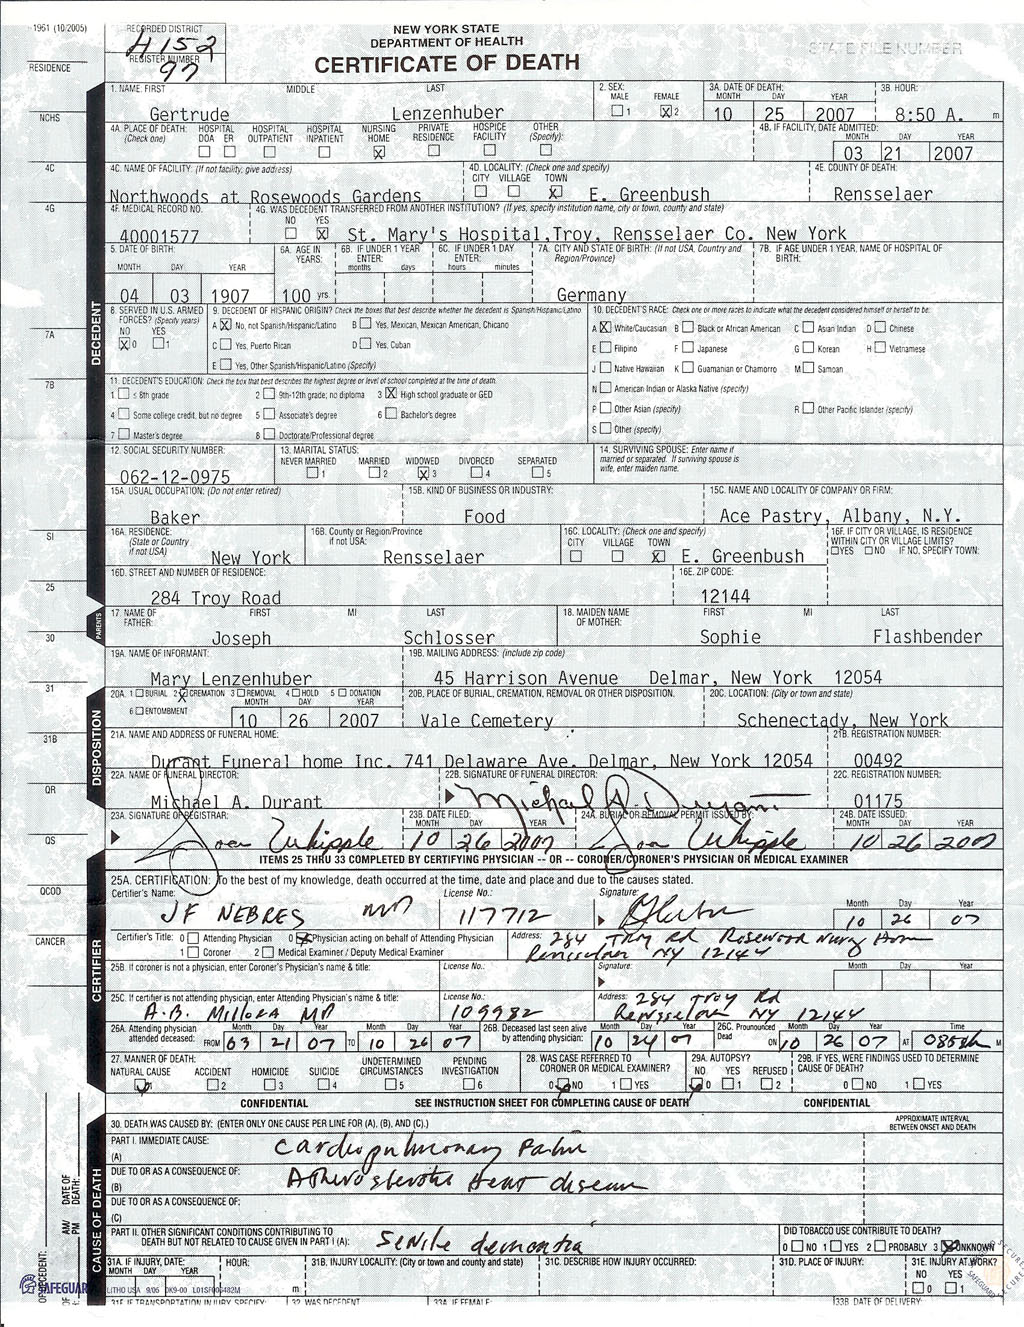 1961 (10/2005)
RECORDED DISTRICT
4152
REGISTER NUMBER
97
NEW YORK STATE
DEPARTMENT OF HEALTH
CERTIFICATE OF DEATH
STATE FILE NUMBER
RESIDENCE
NCHS
4C
4G
7A
7B
SI
25
30
31
31B
QR
QS
QCOD
CANCER
DECEDENT
1. NAME: FIRST MIDDLE LAST
Gertrude Lenzenhuber
2. SEX: MALE FEMALE
1 X 2
3A. DATE OF DEATH: MONTH DAY YEAR
10 25 2007
3B. HOUR:
8:50 A. m
4A. PLACE OF DEATH: (Check one) HOSPITAL DOA ER HOSPITAL OUTPATIENT HOSPITAL INPATIENT NURSING HOME PRIVATE RESIDENCE HOSPICE FACILITY OTHER (Specify):
X
4B. IF FACILITY, DATE ADMITTED: MONTH DAY YEAR
03 21 2007
4C. NAME OF FACILITY: (If not facility, give address)
Northwoods at Rosewoods Gardens
4D. LOCALITY: (Check one and specify) CITY VILLAGE TOWN
X E. Greenbush
4E. COUNTY OF DEATH:
Rensselaer
4F. MEDICAL RECORD NO.
40001577
4G. WAS DECEDENT TRANSFERRED FROM ANOTHER INSTITUTION? (If yes, specify institution name, city or town, county and state)
NO YES
X St. Mary's Hospital,Troy, Rensselaer Co. New York
5. DATE OF BIRTH: MONTH DAY YEAR
04 03 1907
6A. AGE IN YEARS:
100 yrs.
6B. IF UNDER 1 YEAR ENTER: months days
6C. IF UNDER 1 DAY ENTER: hours minutes
7A. CITY AND STATE OF BIRTH: (If not USA, Country and Region/Province)
Germany
7B. IF AGE UNDER 1 YEAR, NAME OF HOSPITAL OF BIRTH:
8. SERVED IN U.S. ARMED FORCES? (Specify years)
NO YES
X 0 1
9. DECEDENT OF HISPANIC ORIGIN? Check the boxes that best describe whether the decedent is Spanish/Hispanic/Latino
A X No, not Spanish/Hispanic/Latino B Yes, Mexican, Mexican American, Chicano
C Yes, Puerto Rican D Yes, Cuban
E Yes, Other Spanish/Hispanic/Latino (Specify)
10. DECEDENT'S RACE: Check one or more races to indicate what the decedent considered himself or herself to be:
A X White/Caucasian B Black or African American C Asian Indian D Chinese
E Filipino F Japanese G Korean H Vietnamese
J Native Hawaiian K Guamanian or Chamorro M Samoan
N American Indian or Alaska Native (specify)
P Other Asian (specify) R Other Pacific Islander (specify)
S Other (specify)
11. DECEDENT'S EDUCATION: Check the box that best describes the highest degree or level of school completed at the time of death.
1 ≤ 8th grade 2 9th-12th grade; no diploma 3 X High school graduate or GED
4 Some college credit, but no degree 5 Associate's degree 6 Bachelor's degree
7 Master's degree 8 Doctorate/Professional degree
12. SOCIAL SECURITY NUMBER:
062-12-0975
13. MARITAL STATUS:
NEVER MARRIED MARRIED WIDOWED DIVORCED SEPARATED
1 2 X 3 4 5
14. SURVIVING SPOUSE: Enter name if married or separated. If surviving spouse is wife, enter maiden name.
15A. USUAL OCCUPATION: (Do not enter retired)
Baker
15B. KIND OF BUSINESS OR INDUSTRY:
Food
15C. NAME AND LOCALITY OF COMPANY OR FIRM:
Ace Pastry, Albany, N.Y.
16A. RESIDENCE: (State or Country if not USA)
New York
16B. County or Region/Province if not USA:
Rensselaer
16C. LOCALITY: (Check one and specify) CITY VILLAGE TOWN
X E. Greenbush
16F. IF CITY OR VILLAGE, IS RESIDENCE WITHIN CITY OR VILLAGE LIMITS?
YES NO IF NO, SPECIFY TOWN:
16D. STREET AND NUMBER OF RESIDENCE:
284 Troy Road
16E. ZIP CODE:
12144
PARENTS
17. NAME OF FATHER: FIRST MI LAST
Joseph Schlosser
18. MAIDEN NAME OF MOTHER: FIRST MI LAST
Sophie Flashbender
19A. NAME OF INFORMANT:
Mary Lenzenhuber
19B. MAILING ADDRESS: (include zip code)
45 Harrison Avenue Delmar, New York 12054
DISPOSITION
20A. 1 BURIAL 2 X CREMATION 3 REMOVAL 4 HOLD 5 DONATION
6 ENTOMBMENT MONTH DAY YEAR
10 26 2007
20B. PLACE OF BURIAL, CREMATION, REMOVAL OR OTHER DISPOSITION.
Vale Cemetery
20C. LOCATION: (City or town and state)
Schenectady, New York
21A. NAME AND ADDRESS OF FUNERAL HOME:
Durant Funeral home Inc. 741 Delaware Ave. Delmar, New York 12054
21B. REGISTRATION NUMBER:
00492
22A. NAME OF FUNERAL DIRECTOR:
Michael A. Durant
22B. SIGNATURE OF FUNERAL DIRECTOR:
Michael A. Durant
22C. REGISTRATION NUMBER:
01175
23A. SIGNATURE OF REGISTRAR:
Joan Whipple
23B. DATE FILED: MONTH DAY YEAR
10 26 2007
24A. BURIAL OR REMOVAL PERMIT ISSUED BY:
Joan Whipple
24B. DATE ISSUED: MONTH DAY YEAR
10 26 2007
ITEMS 25 THRU 33 COMPLETED BY CERTIFYING PHYSICIAN -- OR -- CORONER/CORONER'S PHYSICIAN OR MEDICAL EXAMINER
CERTIFIER
25A. CERTIFICATION: To the best of my knowledge, death occurred at the time, date and place and due to the causes stated.
Certifier's Name: License No.: Signature: Month Day Year
JF NEBRES MD 117712 10 26 07
Certifier's Title: 0 Attending Physician 0 X Physician acting on behalf of Attending Physician
1 Coroner 2 Medical Examiner / Deputy Medical Examiner
Address: 284 Troy Rd Rosewood Nursg Home
Rensselaer NY 12144
25B. If coroner is not a physician, enter Coroner's Physician's name & title: License No.: Signature: Month Day Year
25C. If certifier is not attending physician, enter Attending Physician's name & title: License No.:
A.B. Millora MD 109982
Address: 284 Troy Rd
Rensselaer NY 12144
26A. Attending physician attended deceased: Month Day Year Month Day Year
FROM 03 21 07 TO 10 26 07
26B. Deceased last seen alive by attending physician: Month Day Year
10 24 07
26C. Pronounced Dead Month Day Year Time
ON 10 26 07 AT 0850 M
27. MANNER OF DEATH:
NATURAL CAUSE ACCIDENT HOMICIDE SUICIDE UNDETERMINED CIRCUMSTANCES PENDING INVESTIGATION
1 2 3 4 5 6
28. WAS CASE REFERRED TO CORONER OR MEDICAL EXAMINER?
0 NO 1 YES
29A. AUTOPSY?
NO YES REFUSED
0 1 2
29B. IF YES, WERE FINDINGS USED TO DETERMINE CAUSE OF DEATH?
0 NO 1 YES
CONFIDENTIAL SEE INSTRUCTION SHEET FOR COMPLETING CAUSE OF DEATH CONFIDENTIAL
CAUSE OF DEATH
30. DEATH WAS CAUSED BY: (ENTER ONLY ONE CAUSE PER LINE FOR (A), (B), AND (C).)
APPROXIMATE INTERVAL BETWEEN ONSET AND DEATH
PART I. IMMEDIATE CAUSE:
(A) Cardiopulmonary Failure
DUE TO OR AS A CONSEQUENCE OF:
(B) Atherosclerotic Heart disease
DUE TO OR AS A CONSEQUENCE OF:
(C)
PART II. OTHER SIGNIFICANT CONDITIONS CONTRIBUTING TO DEATH BUT NOT RELATED TO CAUSE GIVEN IN PART I (A):
Senile dementia
DID TOBACCO USE CONTRIBUTE TO DEATH?
0 NO 1 YES 2 PROBABLY 3 X UNKNOWN
31A. IF INJURY, DATE: MONTH DAY YEAR HOUR: m
31B. INJURY LOCALITY: (City or town and county and state)
31C. DESCRIBE HOW INJURY OCCURRED:
31D. PLACE OF INJURY:
31E. INJURY AT WORK?
NO YES
0 1
DATE OF DEATH:
AM/PM
OF DECEDENT:
SAFEGUARD LITHO USA 9/05 DK9-00 L01SF006482M
31F. IF TRANSPORTATION INJURY, SPECIFY: 32. WAS DECEDENT 33A. IF FEMALE: 33B. DATE OF DELIVERY: